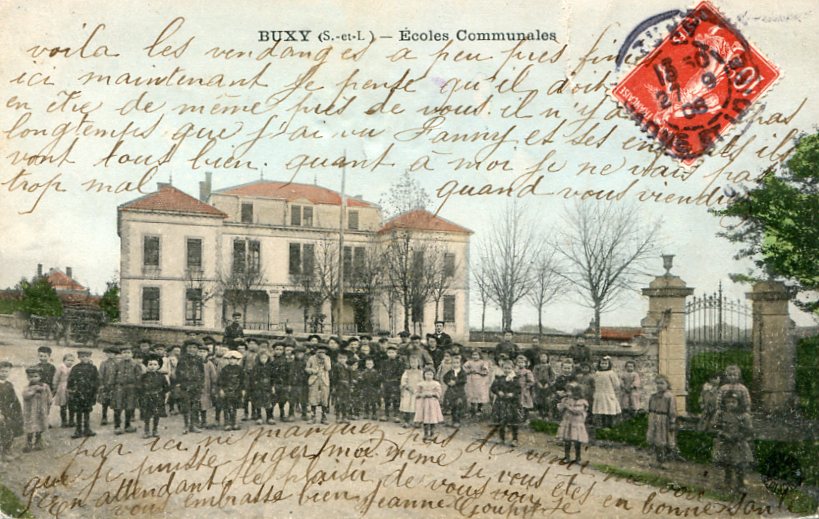 BUXY (S.-et-L) — Écoles Communales
voila les vendanges a peu près
ici maintenant je pense qu'il doit
en être de même près de vous. il n'y a pas
longtemps que j'ai vu Fanny et ses enfants ils
vont tous bien. quant à moi je ne vais pas
trop mal quand vous viendrez
par ici ne manquez pas de venir me voir
que je puisse juger moi même si vous êtes en bonne santé
En attendant le plaisir de vous voir
vous embrasse bien Jeanne